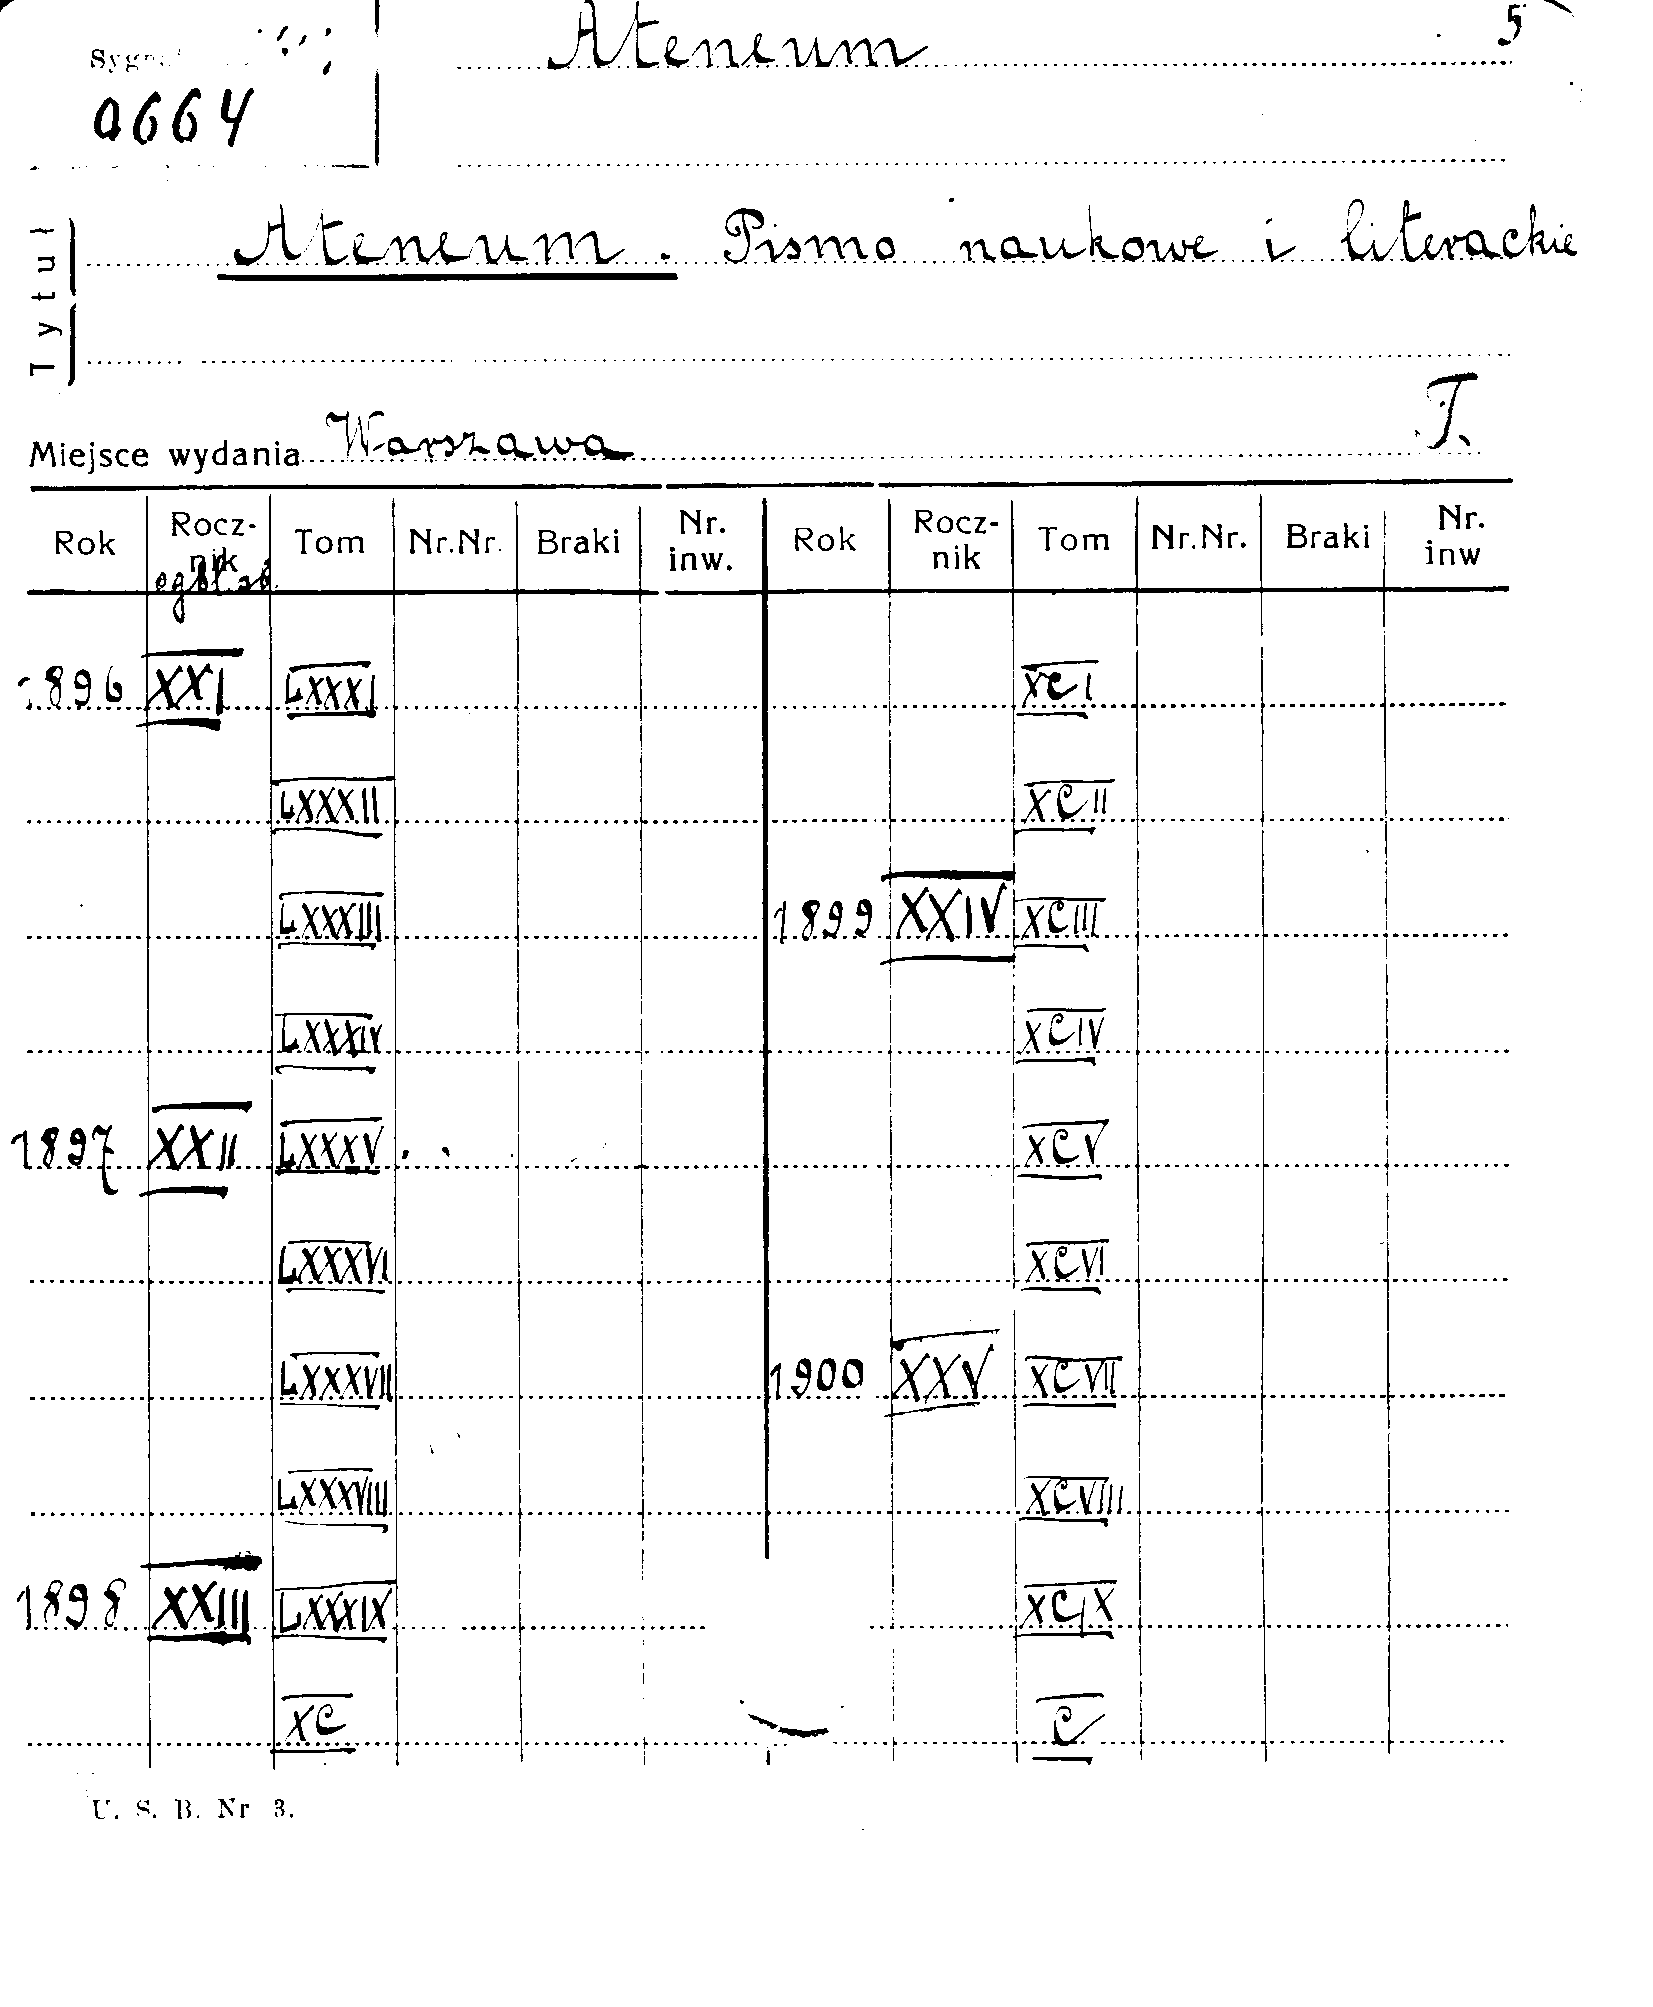 5
Ateneum
0664
Tytuł
Ateneum. Pismo naukowe i literackie
T.
Miejsce wydania Warszawa
Rok Rocz-nik Tom Nr.Nr. Braki Nr. inw. Rok Rocz-nik Tom Nr.Nr. Braki Nr. inw
1896 XXI LXXXI XCI
LXXXII XCII
LXXXIII 1899 XXIV XCIII
LXXXIV XCIV
1897 XXII LXXXV XCV
LXXXVI XCVI
LXXXVII 1900 XXV XCVII
LXXXVIII XCVIII
1898 XXIII LXXXIX XCIX
XC C
U. S. B. Nr 3.